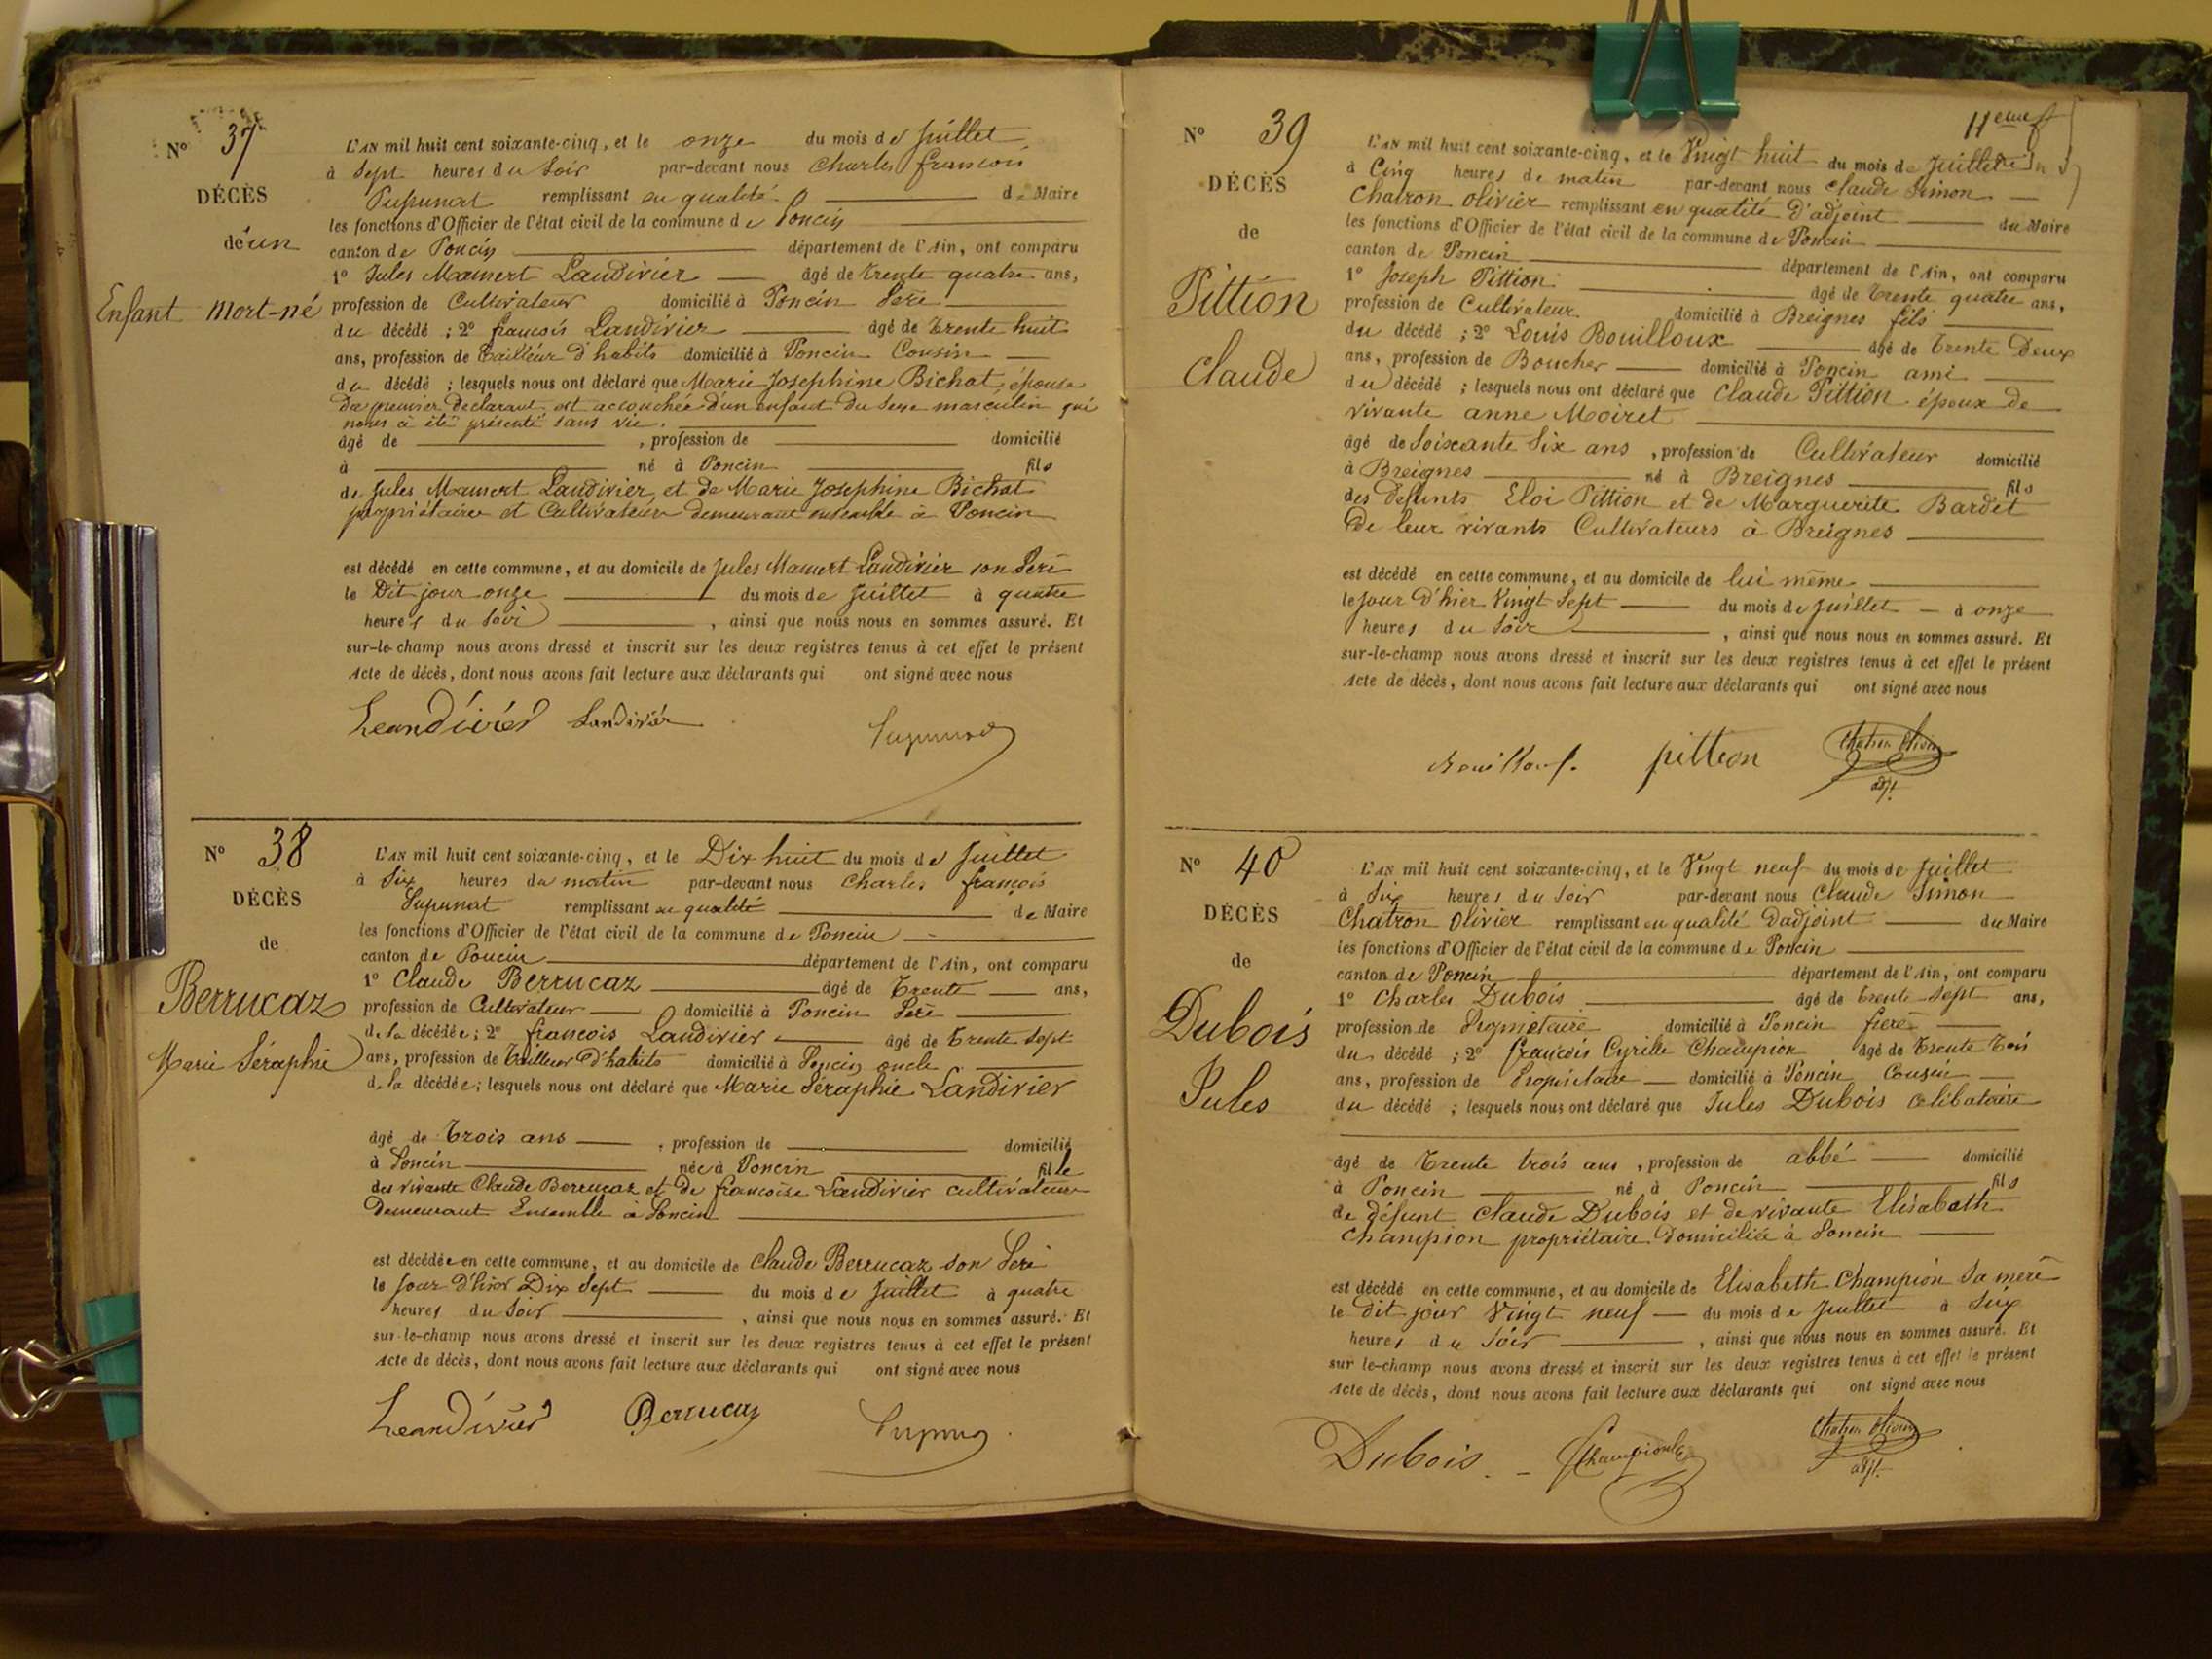 N° 37
DÉCÈS
de un
Enfant Mort-né
L'AN mil huit cent soixante-cinq, et le onze du mois de Juillet
à Sept heures du Soir par-devant nous Charles francois
Pupunat remplissant en qualité de Maire
les fonctions d'Officier de l'état civil de la commune de Poncin
canton de Poncin département de l'Ain, ont comparu
1° Jules Mamert Landivier âgé de trente quatre ans,
profession de Cultivateur domicilié à Poncin Père
du décédé ; 2° francois Landivier âgé de trente huit
ans, profession de tailleur d'habits domicilié à Poncin Cousin
du décédé ; lesquels nous ont déclaré que Marie Josephine Bichat épouse
du premier declarant est accouchée d'un enfant du sexe masculin qui
nous à été présenté sans vie.
âgé de , profession de domicilié
à né à Poncin fils
de Jules Mamert Landivier et de Marie Josephine Bichat
propriétaires et Cultivateurs demeurant ensemble à Poncin
est décédé en cette commune, et au domicile de Jules Mamert Landivier son Père
le Dit jour onze du mois de Juillet à quatre
heures du Soir , ainsi que nous nous en sommes assuré. Et
sur-le-champ nous avons dressé et inscrit sur les deux registres tenus à cet effet le présent
Acte de décès, dont nous avons fait lecture aux déclarants qui ont signé avec nous
Leandivier Landivier Pupunat
N° 38
DÉCÈS
de
Berrucaz
Marie Séraphie
L'AN mil huit cent soixante-cinq, et le Dix huit du mois de Juillet
à Six heures du matin par-devant nous Charles françois
Pupunat remplissant en qualité de Maire
les fonctions d'Officier de l'état civil de la commune de Poncin
canton de Poncin département de l'Ain, ont comparu
1° Claude Berrucaz âgé de Trente ans,
profession de Cultivateur domicilié à Poncin Père
de la décédée ; 2° francois Landivier âgé de trente sept
ans, profession de Tailleur d'habits domicilié à Poncin oncle
de la décédée ; lesquels nous ont déclaré que Marie Séraphie Landivier
âgé de Trois ans , profession de domicilié
à Poncin née à Poncin fille
des vivants Claude Berrucaz et de francoise Landivier cultivateurs
Demeurant Ensemble à Poncin
est décédée en cette commune, et au domicile de Claude Berrucaz son Père
le Jour d'hier Dix Sept du mois de Juillet à quatre
heures du Soir , ainsi que nous nous en sommes assuré. Et
sur-le-champ nous avons dressé et inscrit sur les deux registres tenus à cet effet le présent
Acte de décès, dont nous avons fait lecture aux déclarants qui ont signé avec nous
Leandivier Berrucaz
11eme f
N° 39
DÉCÈS
de
Pittion
Claude
L'AN mil huit cent soixante-cinq, et le Vingt huit du mois de Juillet
à Cinq heures de matin par-devant nous Claude Simon
Chatron olivier remplissant en qualité d'adjoint du Maire
les fonctions d'Officier de l'état civil de la commune de Poncin
canton de Poncin département de l'Ain, ont comparu
1° Joseph Pittion âgé de trente quatre ans,
profession de Cultivateur domicilié à Breignes fils
du décédé ; 2° Louis Bouilloux âgé de trente Deux
ans, profession de Boucher domicilié à Poncin ami
du décédé ; lesquels nous ont déclaré que Claude Pittion époux de
vivante anne Moiret
âgé de Soixante Six ans , profession de Cultivateur domicilié
à Breignes né à Breignes fils
des défunts Eloi Pittion et de Marguerite Bardet
De leur vivants Cultivateurs à Breignes
est décédé en cette commune, et au domicile de lui même
le Jour d'hier Vingt Sept du mois de Juillet à onze
heures du Soir , ainsi que nous nous en sommes assuré. Et
sur-le-champ nous avons dressé et inscrit sur les deux registres tenus à cet effet le présent
Acte de décès, dont nous avons fait lecture aux déclarants qui ont signé avec nous
pittion Chatron Olivier
adjt
N° 40
DÉCÈS
de
Dubois
Jules
L'AN mil huit cent soixante-cinq, et le Vingt neuf du mois de Juillet
à Six heures du Soir par-devant nous Claude Simon
Chatron Olivier remplissant en qualité Dadjoint du Maire
les fonctions d'Officier de l'état civil de la commune de Poncin
canton de Poncin département de l'Ain, ont comparu
1° Charles Dubois âgé de trente Sept ans,
profession de Propriétaire domicilié à Poncin frere
du décédé ; 2° françois Cyrille Champion âgé de trente Trois
ans, profession de Propriétaire domicilié à Poncin Cousin
du décédé ; lesquels nous ont déclaré que Jules Dubois célibataire
âgé de Trente trois ans , profession de abbé domicilié
à Poncin né à Poncin fils
de défunt Claude Dubois et de vivante Elisabeth
Champion propriétaire Domiciliée à Poncin
est décédé en cette commune, et au domicile de Elisabeth Champion Sa mère
le dit jour Vingt neuf du mois de Juillet à Six
heures du Soir , ainsi que nous nous en sommes assuré. Et
sur-le-champ nous avons dressé et inscrit sur les deux registres tenus à cet effet le présent
Acte de décès, dont nous avons fait lecture aux déclarants qui ont signé avec nous
Dubois Chatron Olivier
adjt